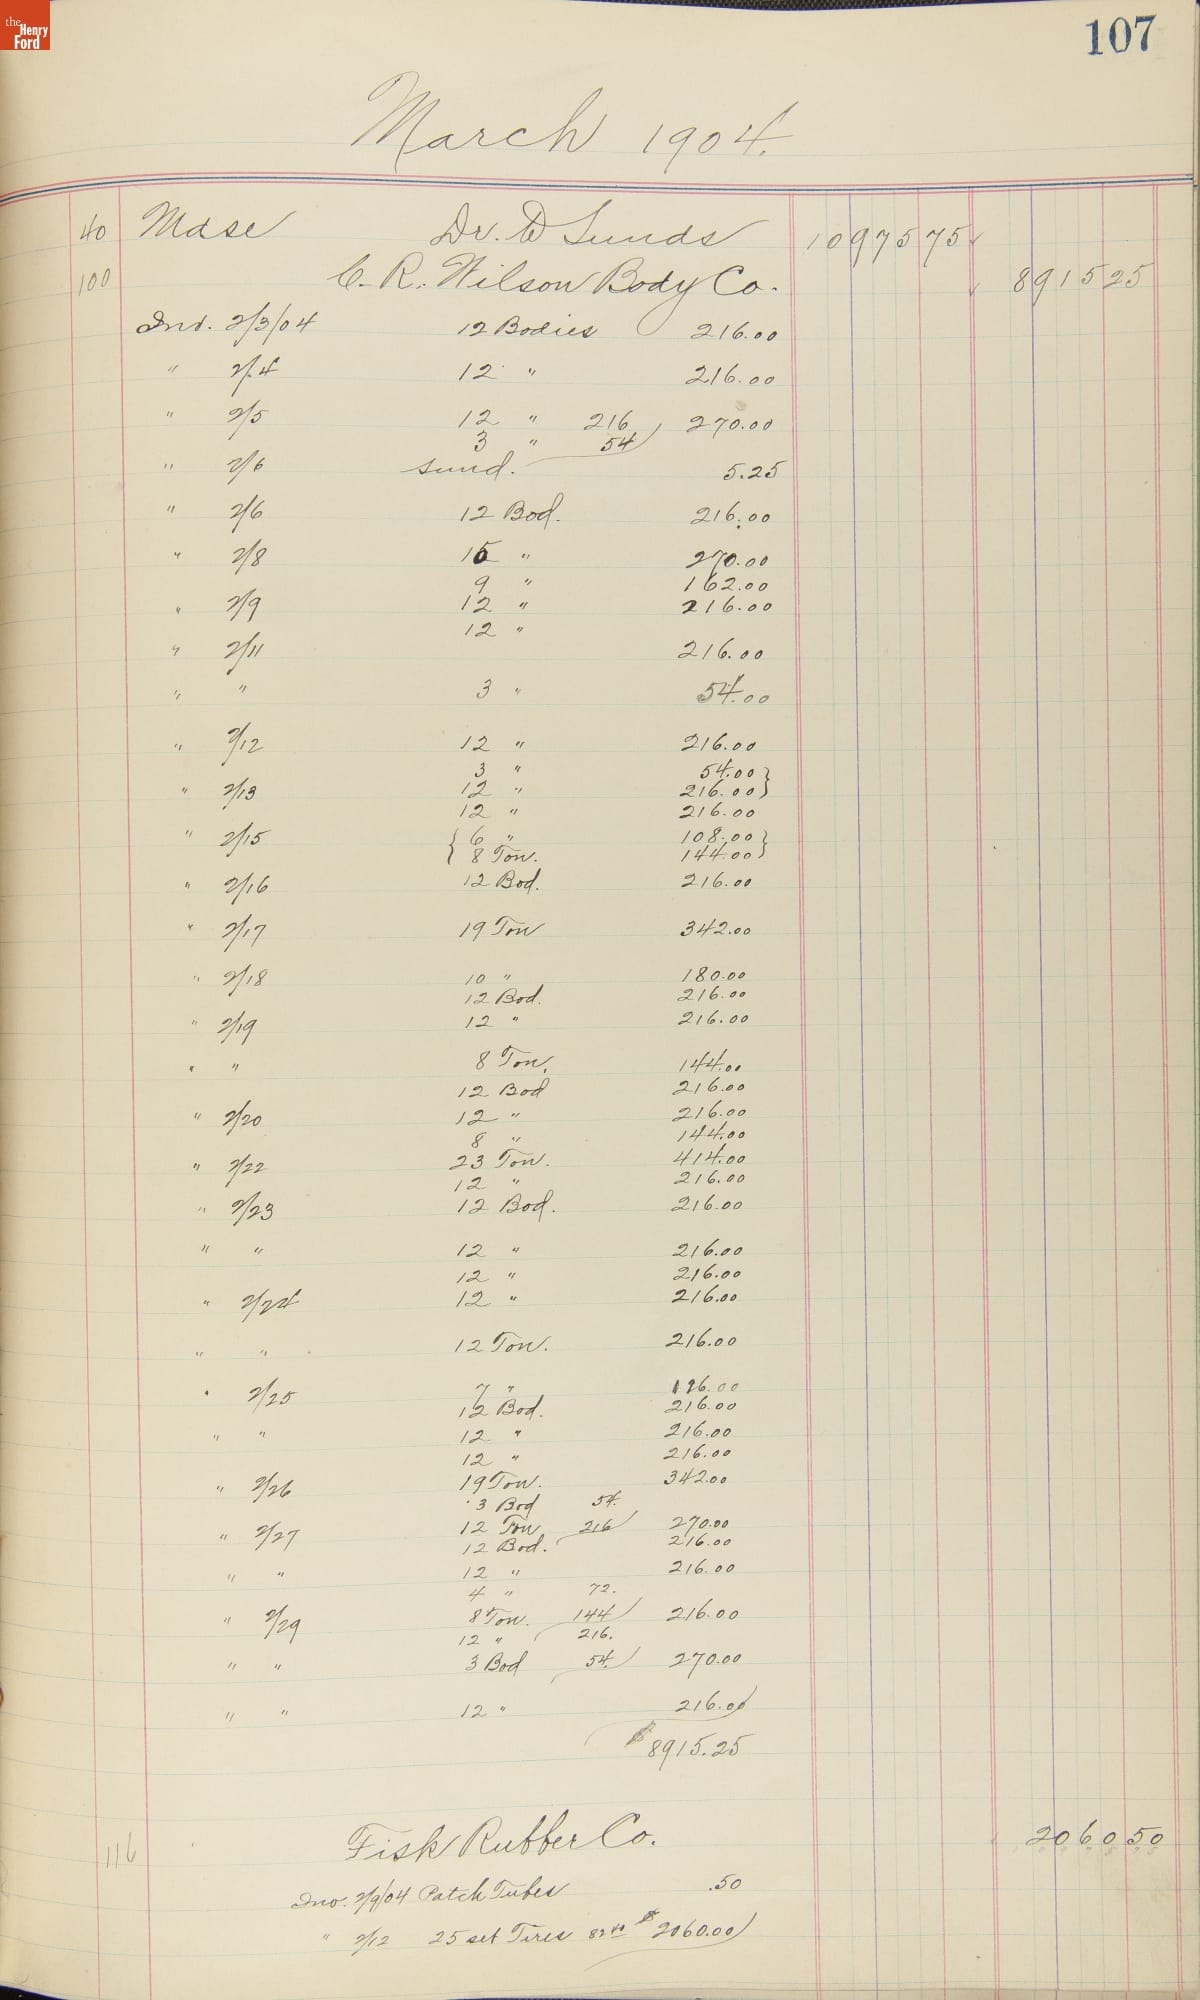 the Henry Ford
107
March 1904.
40 Mdse Dr. To Sunds 10975 75
100 C. R. Wilson Body Co. 8915 25
Inv. 2/3/04 12 Bodies 216.00
" 2/4 12 " 216.00
" 2/5 12 " 216 270.00
3 " 54
" 2/6 Sund. 5.25
" 2/6 12 Bod. 216.00
" 2/8 15 " 270.00
9 " 162.00
" 2/9 12 " 216.00
12 "
" 2/11 216.00
" " 3 " 54.00
" 2/12 12 " 216.00
3 " 54.00
" 2/13 12 " 216.00
12 " 216.00
" 2/15 6 " 108.00
8 Ton. 144.00
" 2/16 12 Bod. 216.00
" 2/17 19 Ton 342.00
" 2/18 10 " 180.00
12 Bod. 216.00
" 2/19 12 " 216.00
" " 8 Ton. 144.00
12 Bod 216.00
" 2/20 12 " 216.00
8 " 144.00
" 2/22 23 Ton. 414.00
12 " 216.00
" 2/23 12 Bod. 216.00
" " 12 " 216.00
12 " 216.00
" 2/24 12 " 216.00
" " 12 Ton. 216.00
" 2/25 7 " 126.00
12 Bod. 216.00
" " 12 " 216.00
12 " 216.00
" 2/26 19 Ton. 342.00
3 Bod 54.
" 2/27 12 Ton 216 270.00
12 Bod. 216.00
" " 12 " 216.00
4 " 72.
" 2/29 8 Ton. 144 216.00
12 " 216.
" " 3 Bod 54. 270.00
" " 12 " 216.00
$8915.25
116 Fisk Rubber Co. 2060 50
Inv. 2/9/04 Patch Tubes .50
" 2/12 25 set Tires 82 40 $2060.00